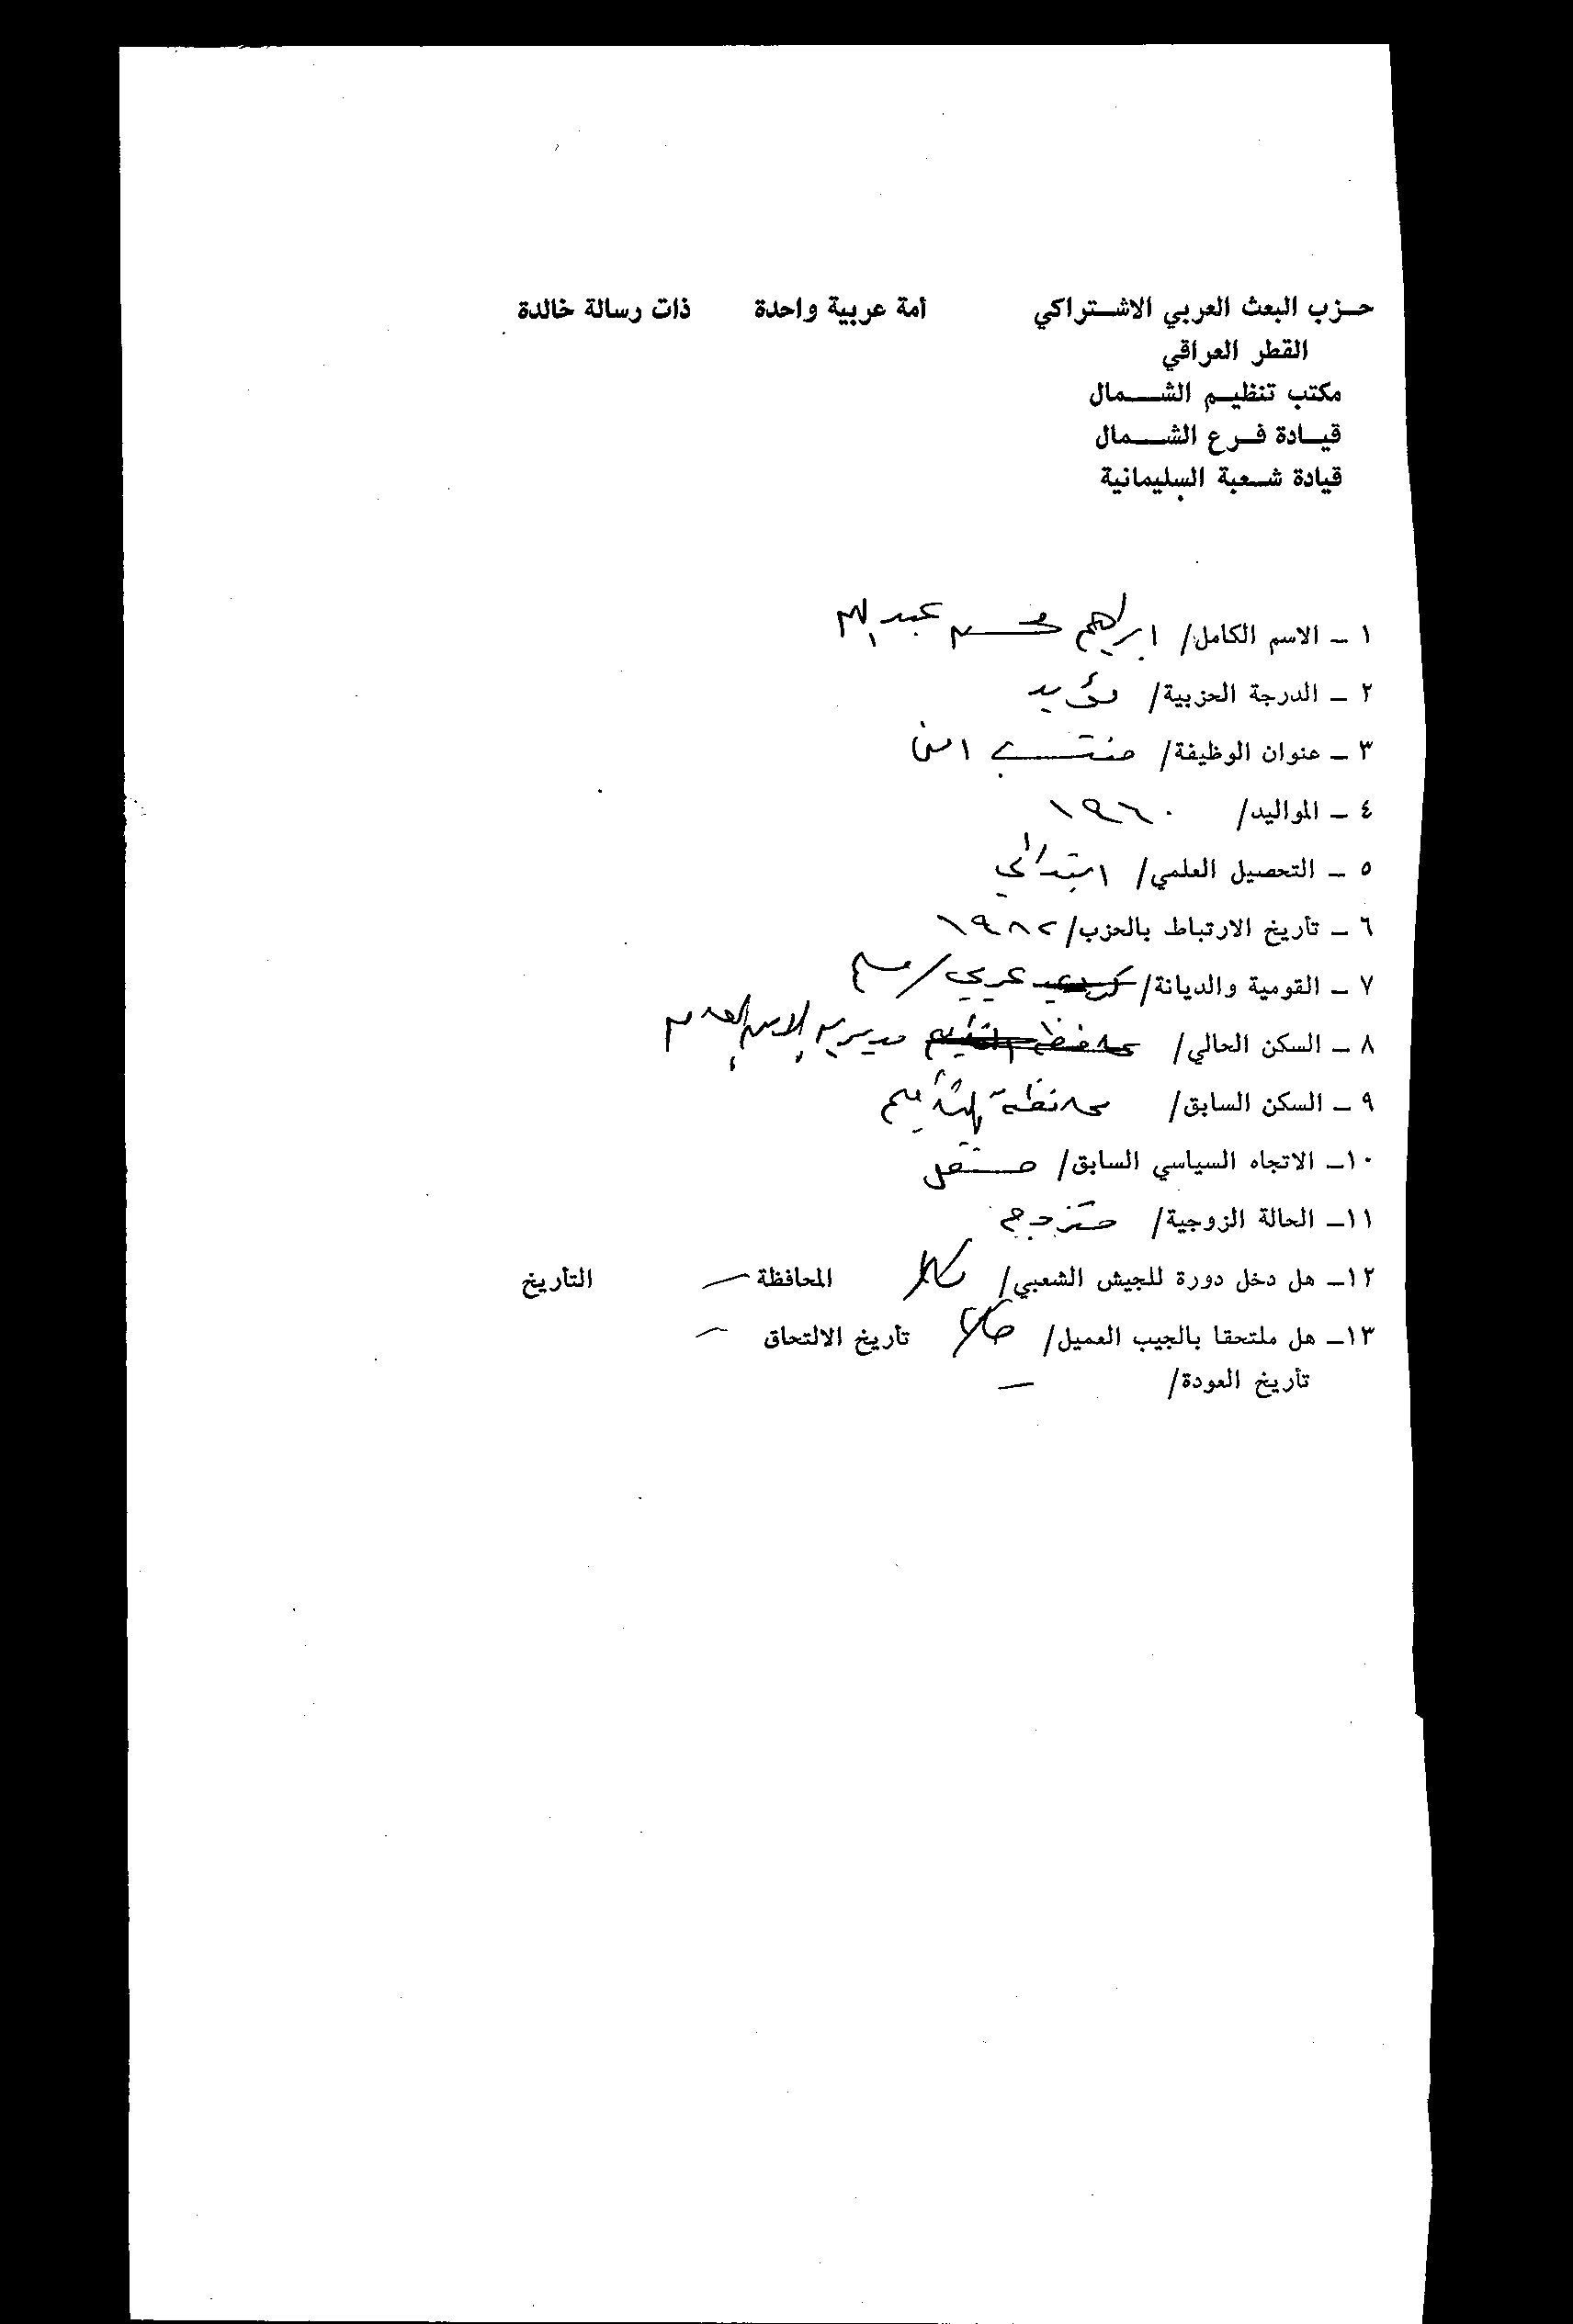 حـزب البعث العربي الاشـتراكي أمة عربية واحدة ذات رسالة خالدة
القطر العراقي
مكتب تنظيـم الشـــمال
قيـادة فـرع الشـــمال
قيادة شـعبة السليمانية
١ ـ الاسم الكامل/ ابراهيم محمد
٢ ـ الدرجة الحزبية/ مؤيد
٣ ـ عنوان الوظيفة/ منتسب امن
٤ ـ المواليد/ ١٩٦٠
٥ ـ التحصيل العلمي/ ابتدائي
٦ ـ تأريخ الارتباط بالحزب/ ١٩٨٢
٧ ـ القومية والديانة/ كردي عربي / مسلم
٨ ـ السكن الحالي/ محافظة التأميم مديرية الامن العامة
٩ ـ السكن السابق/ محافظة التأميم
١٠ـ الاتجاه السياسي السابق/ مستقل
١١ـ الحالة الزوجية/ متزوج
١٢ـ هل دخل دورة للجيش الشعبي/ كلا المحافظة ـ التأريخ
١٣ـ هل ملتحقا بالجيب العميل/ كلا تأريخ الالتحاق ـ
تأريخ العودة/ ـ